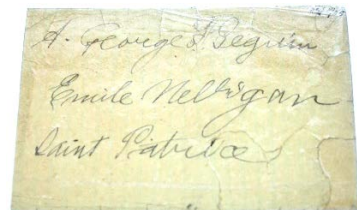 A. George A Beguin
Emile Nelligan
Saint Patrice